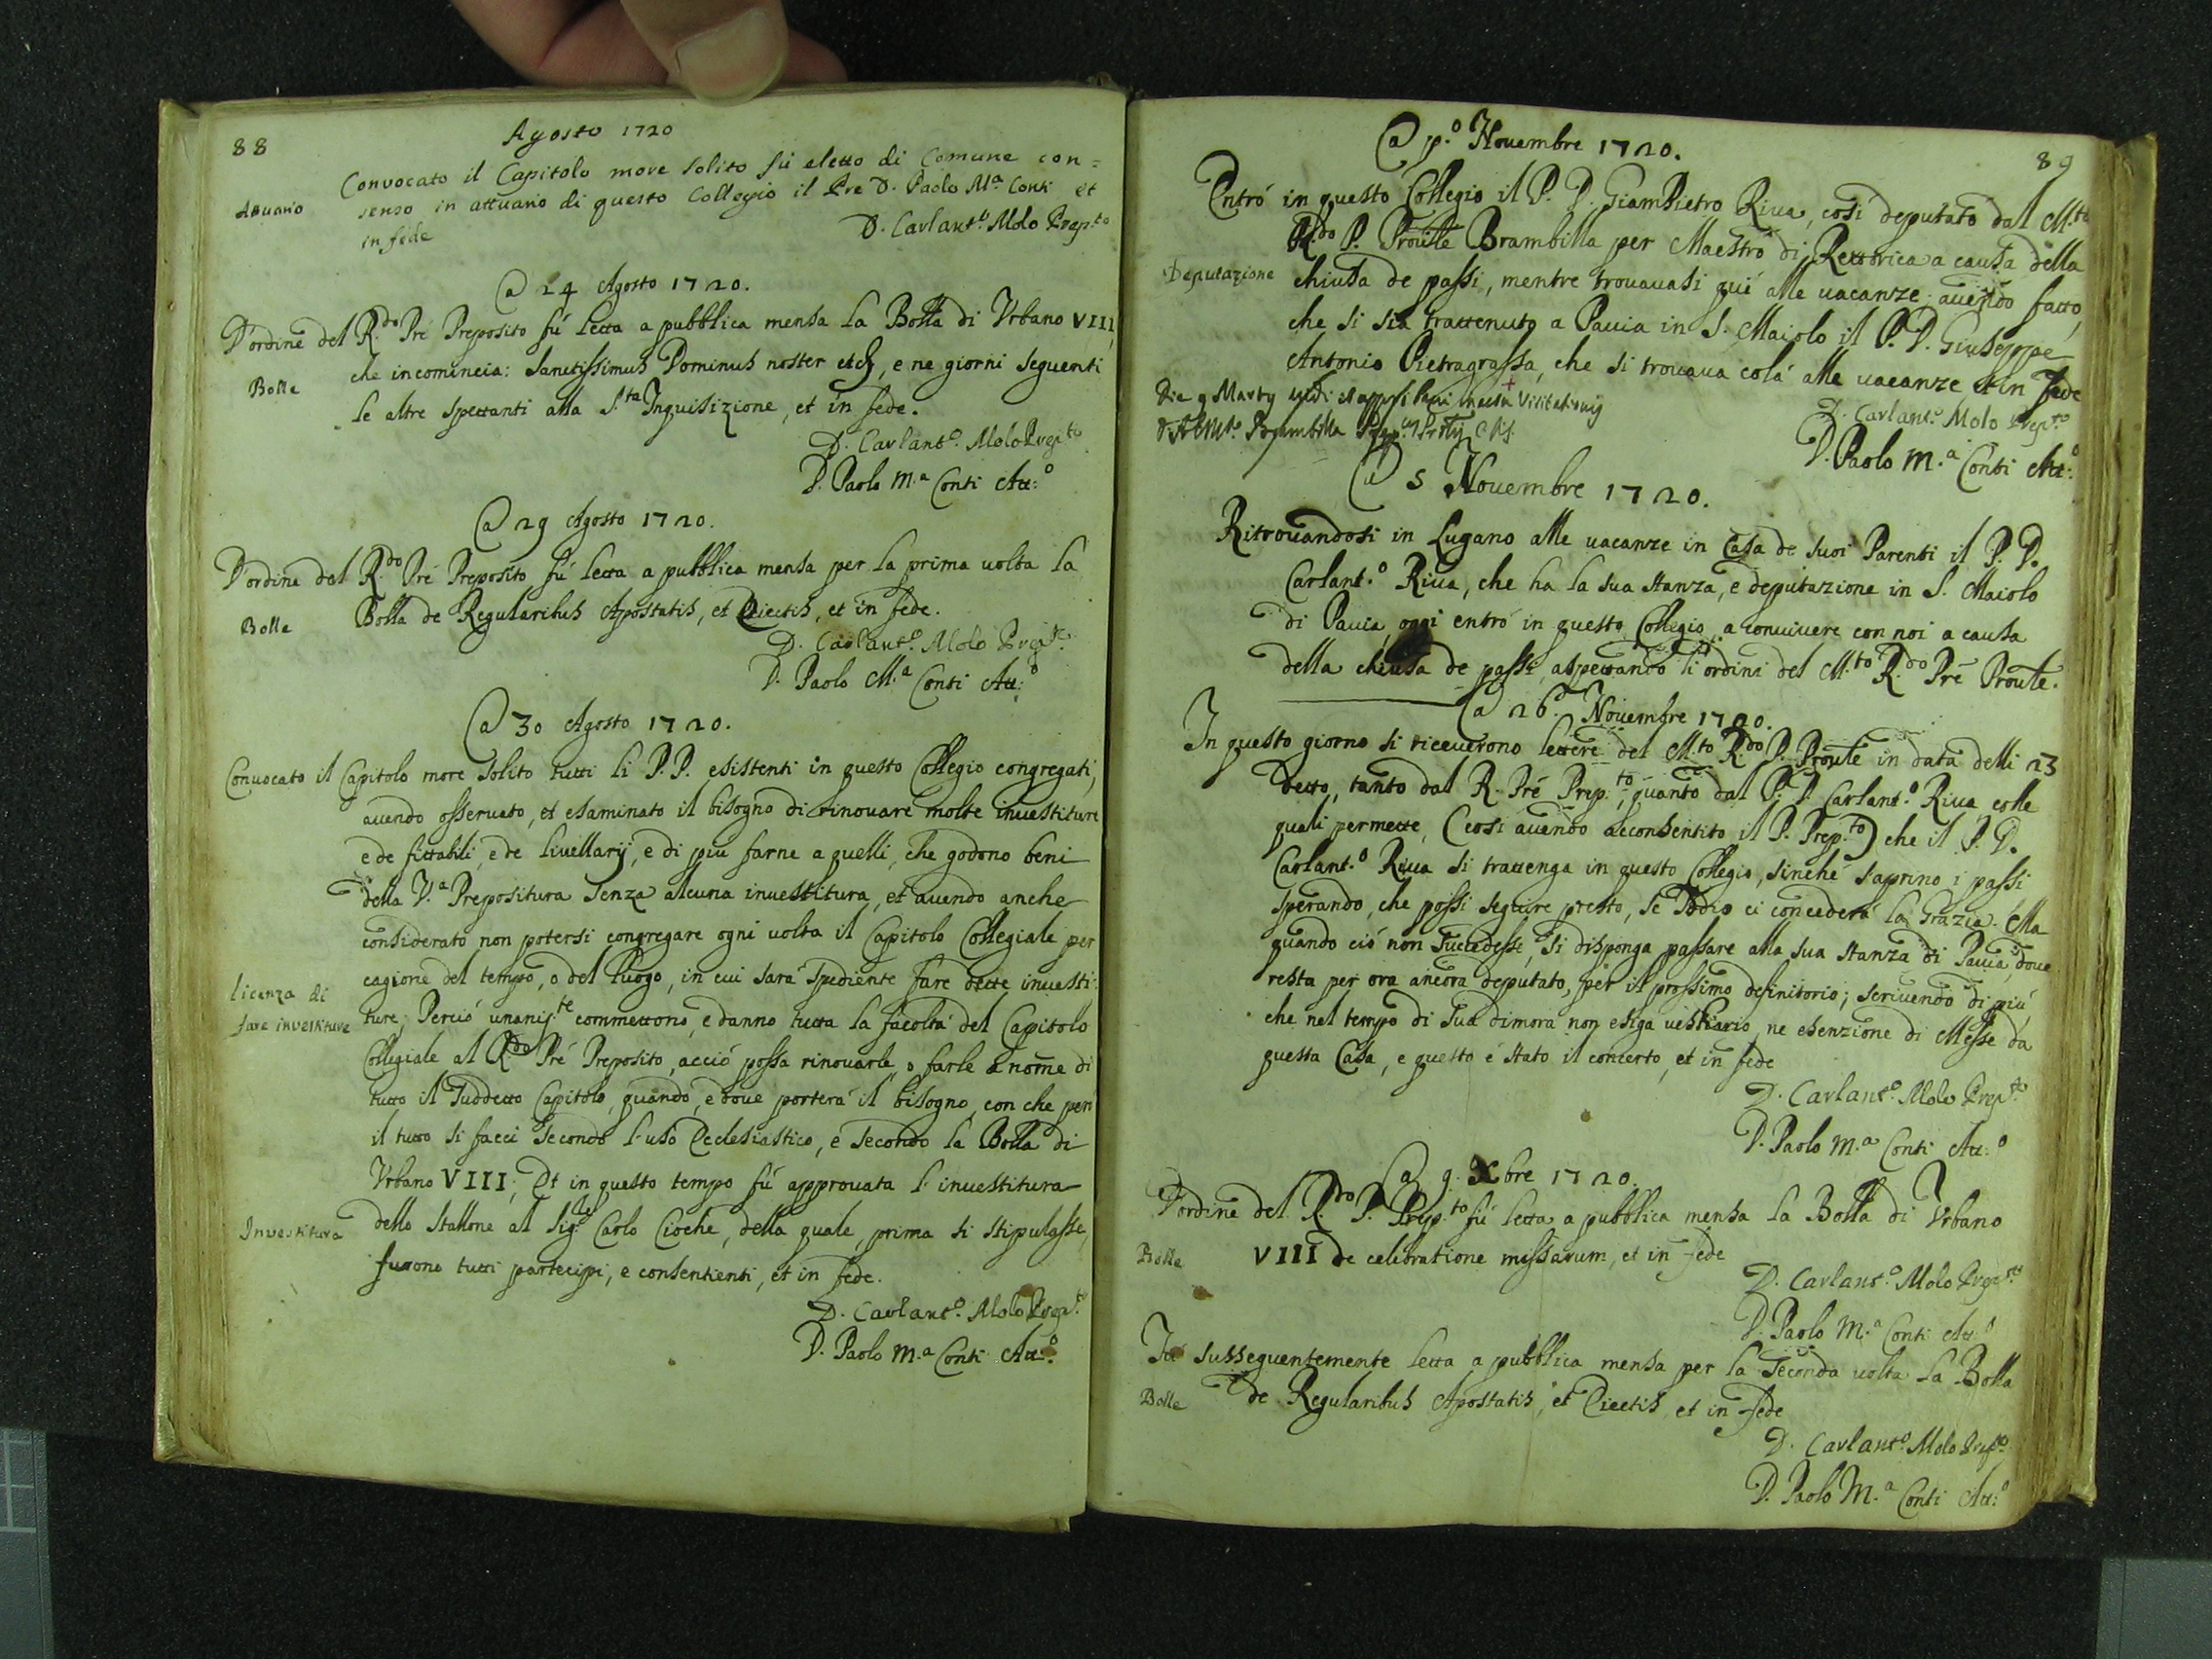 88
Agosto 1720
Convocato il Capitolo more solito fù eletto di Comune con=
Attuario
senso in attuario di questo Collegio il Pre D. Paolo Mª Conti et
in fede
D. Carlant.º Molo Prep.to
@ 24 Agosto 1720.
D'ordine del R.do Pre Preposito fú letta a pubblica mensa la Bolla di Vrbano VIII,
che incomincia: Sanctissimus Dominus noster etc, e ne giorni seguenti
Bolle
le altre spettanti alla S.ta Inquisizione, et in fede.
D. Carlant.º Molo Prep.to
D. Paolo M.a Conti Att:º
@ 29 Agosto 1720.
D'ordine del R.do Pré Preposito fú letta a pubblica mensa per la prima uolta la
Bolle
Bolla de Regularibus Apostatis, et Eiectis, et in fede.
D. Carlant.º Molo Prep.to
D. Paolo M.a Conti Att:º
@ 30 Agosto 1720.
Conuocato il Capitolo more solito tutti li P.P. esistenti in questo Collegio congregati,
auendo osseruato, et esaminato il bisogno di rinouare molte inuestiture
e de fittabili, e de liuellarij, e di piu farne a quelli, che godono beni
della V.a Prepositura senza alcuna inuestitura, et auendo anche
considerato non potersi congregare ogni uolta il Capitolo Collegiale per
cagione del tempo, o del luogo, in cui sará spediente fare dette inuesti=
licenza di
fare investiture
ture; Perció unanij.te commettono, e danno tutta la facoltá del Capitolo
Collegiale al R.do Pré Preposito, acció possa rinouarle, o farle a nome di
tutto il suddetto Capitolo, quando, e doue porterá il bisogno, con che peró
il tutto si facci secondo l'uso Ecclesiastico, e secondo la Bolla di
Vrbano VIII; Et in questo tempo fú approuata l'inuestitura
Investitura
dello Stallone al Sig.re Carlo Cioche, della quale, prima si stipulasse,
furono tutti partecipi, e consentienti, et in fede.
D. Carlant.º Molo Prep.to
D. Paolo M.a Conti Att:º
89
@ p.º Nouembre 1720.
Entró in questo Collegio il P. D. GiamPietro Riua, cosí deputato dal M.to
R.do P. Proule Brambilla per Maestro di Rettorica a causa della
Deputazione
chiusa de passi, mentre trouauasi quí alle uacanze, auendo fatto,
che si sia trattenuto a Pauia in S. Maiolo il P. D. Giuseppe
Antonio Pietragrassa, che si trouaua colá alle uacanze, et in fede
D. Carlant.º Molo Prep.to
Die 9 Marty
Brambilla
D. Paolo M.a Conti Att:º
@ 5 Nouembre 1720.
Ritrouandosi in Lugano alle uacanze in Casa de suoi Parenti il P. D.
Carlant.º Riua, che ha la sua stanza, e deputazione in S. Maiolo
di Pauia, oggi entró in questo Collegio, a conuiuere con noi a causa
della chiusa de passi, aspettando li ordini del M.to R.do Pré Proule.
@ 26 Nouembre 1720.
In questo giorno si riceuerono lettere del M.to R.do P. Proule in data delli 23
detto, tanto dal R. Pré Prep.to, quanto dal P. D. Carlant.º Riua colle
quali permette, (cosí auendo acconsentito il P. Prep.to) che il P. D.
Carlant.º Riua si trattenga in questo Collegio, sinché s'aprino i passi
sperando, che possi seguire presto, se Iddio ci concederá la Grazia. Ma
quando ció non succedesse, si disponga passare alla sua stanza di Pauia, doue
resta per ora ancora deputato, per il prossimo definitorio; scriuendo di piú,
che nel tempo di sua dimora non esiga uestiario, ne esenzione di Messe da
questa Casa, e questo é stato il concerto, et in fede
D. Carlant.º Molo Prep.to
D. Paolo M.a Conti Att:º
@ 9. Xbre 1720.
D'ordine del R.do P. Prep.to fú letta a pubblica mensa la Bolla di Vrbano
Bolle
VIII de celebratione missarum, et in fede
D. Carlant.º Molo Prep.to
D. Paolo M.a Conti Att:º
Fú susseguentemente letta a pubblica mensa per la seconda uolta la Bolla
Bolle
de Regularibus Apostatis, et Eiectis, et in fede
D. Carlant.º Molo Prep.to
D. Paolo M.a Conti Att:º